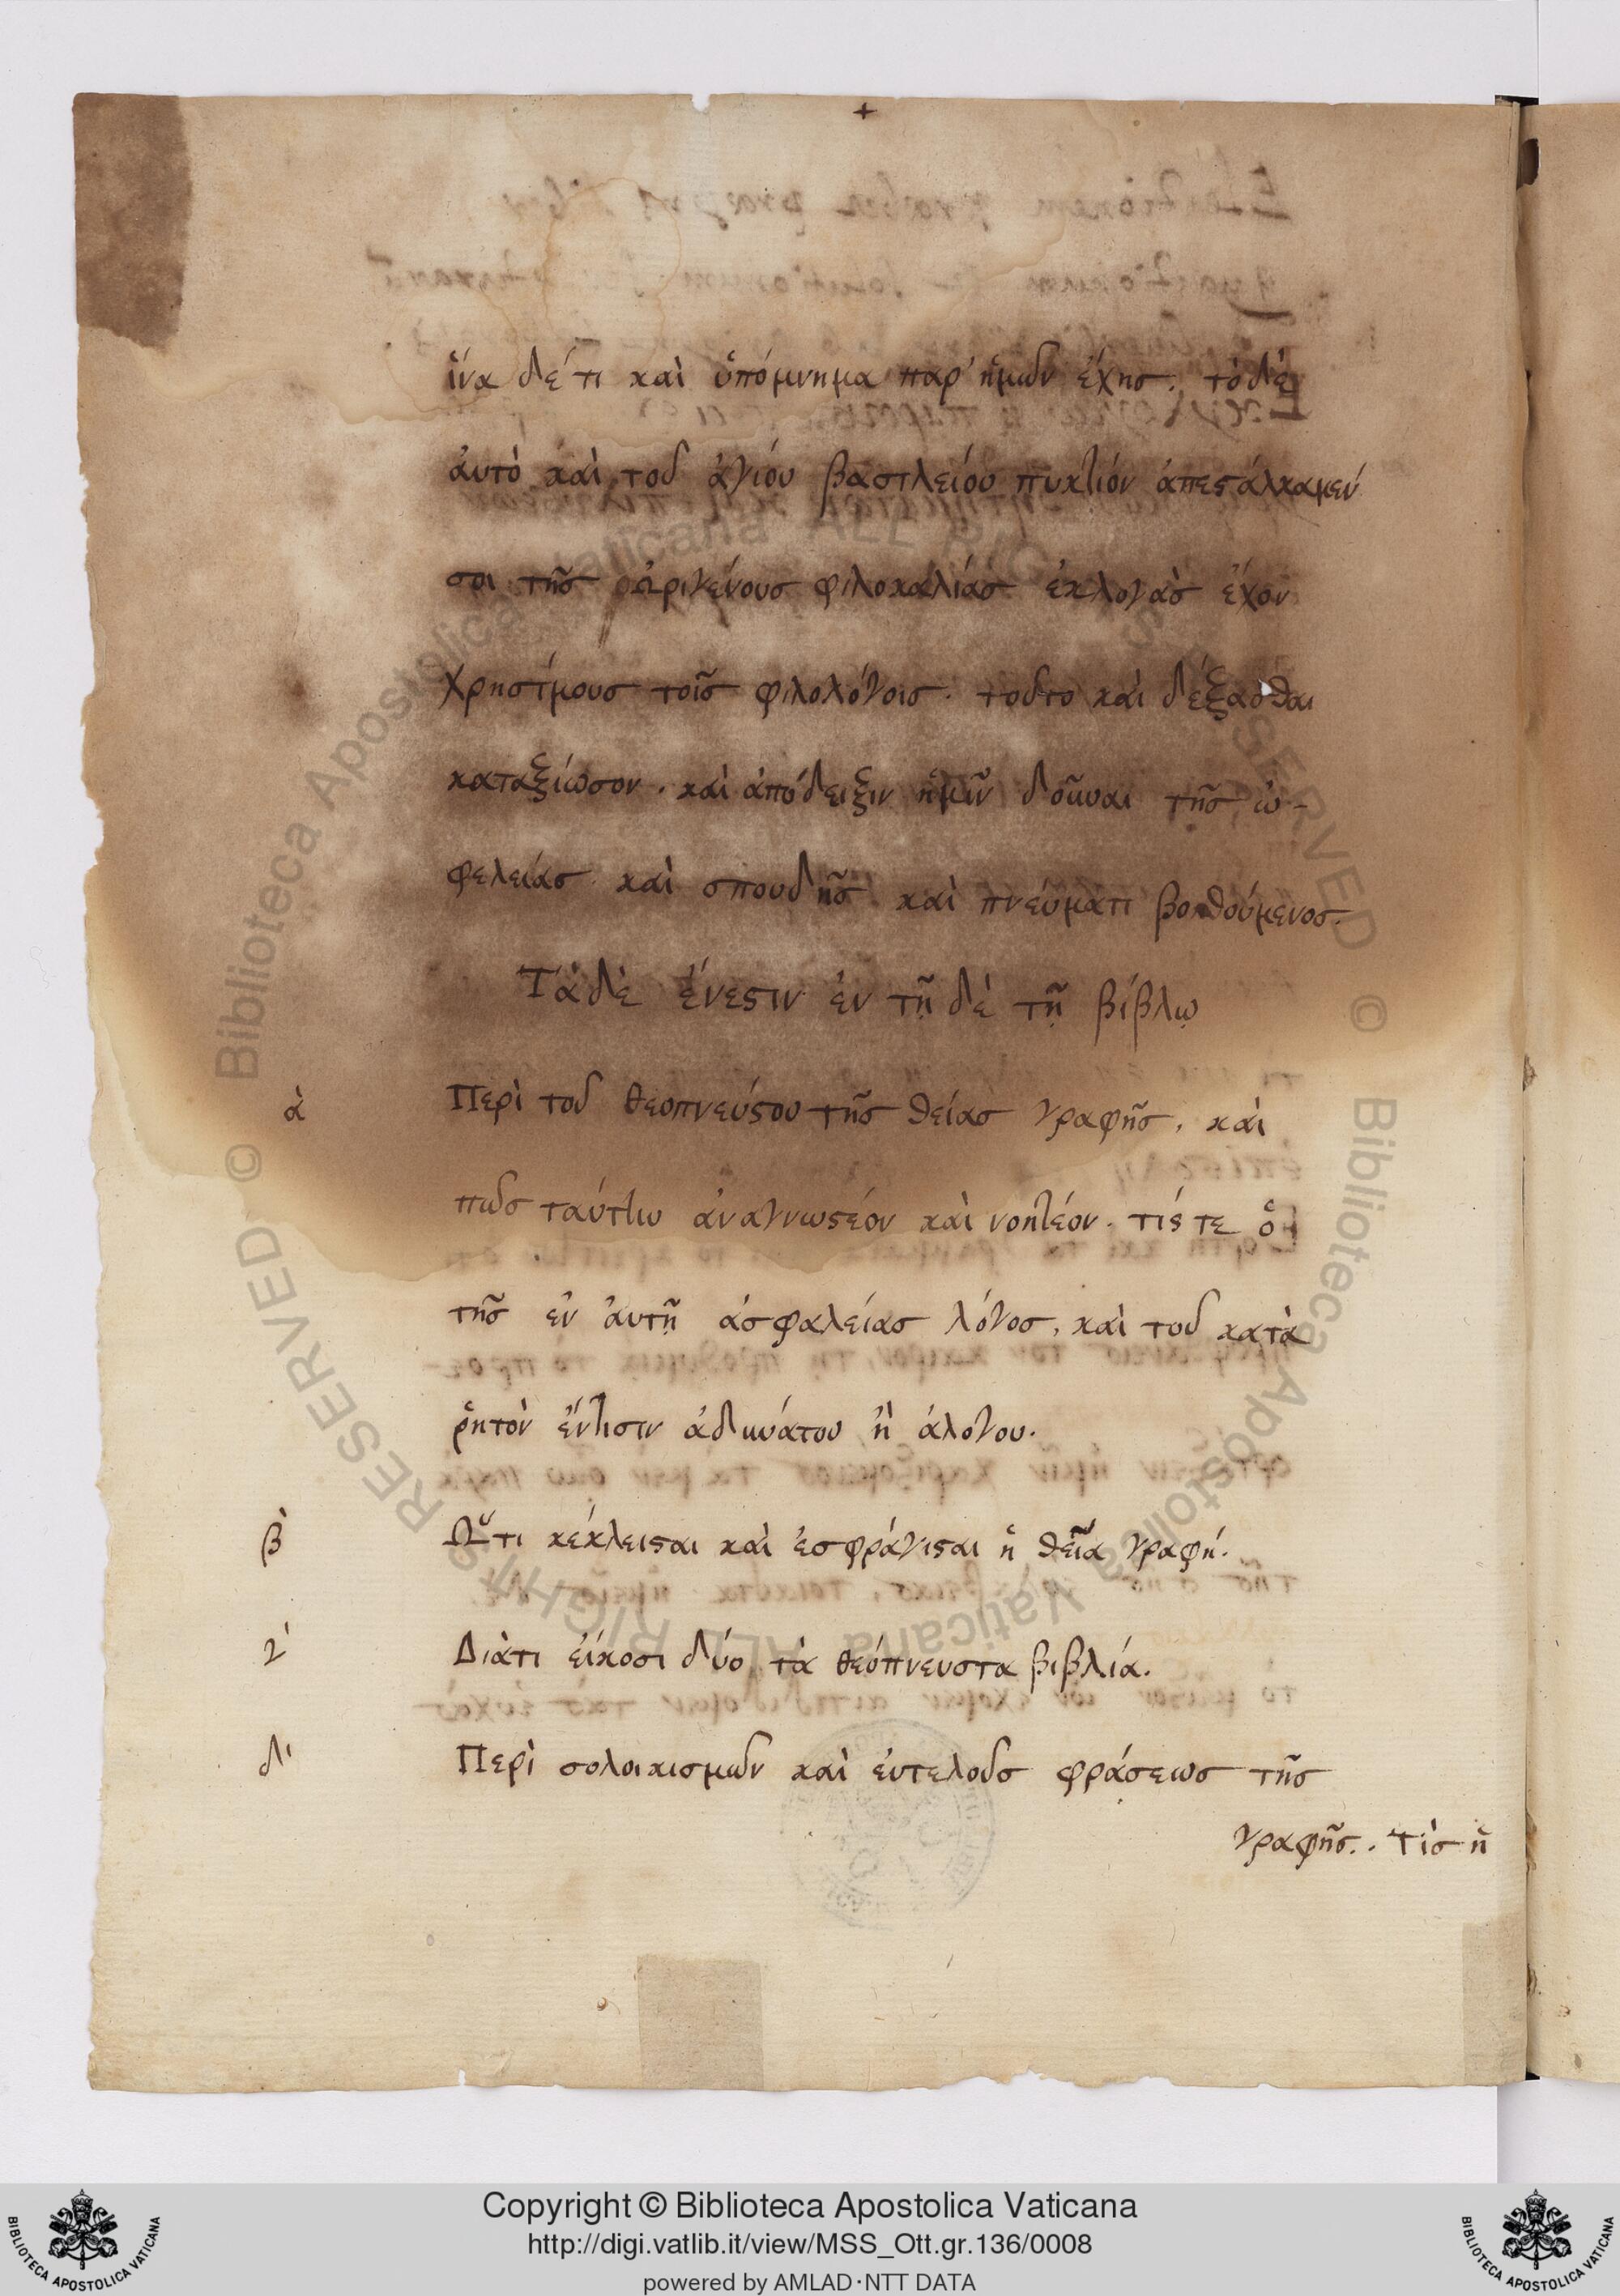 +
ἵνα δέ τι καὶ ὑπόμνημα παρ' ἡμῶν ἔχης. τὸ δὲ
ἀυτὸ καὶ τοῦ ἁγίου βασιλείου πυκτίον ἀπεϛάλκαμέν
σοι τῆς Ὠριγένους φιλοκαλίας ἐκλογὰς ἔχον
χρησίμους τοῖς φιλολόγοις. τοῦτο καὶ δέξασθαι
καταξίωσον. καὶ ἀπόδειξιν ἡμῖν δοῦναι τῆς ὠ-
φελείας καὶ σπουδῆς καὶ πνεύματι βοηθούμενος.
Τάδε ἔνεϛιν ἐν τῇ δὲ τῇ βίβλῳ
ὰ Περὶ τοῦ θεοπνεύϛου τῆς θείας γραφῆς, καὶ
πῶς ταύτην ἀναγνωϛέον καὶ νοητέον. τίϛ τε ὁ
τῆς ἐν ἀυτῇ ἀσφαλείας λόγος, καὶ τοῦ κατὰ
ῥητὸν ἔν τισιν ἀδυνάτου ἢ ἀλόγου.
β Ὥτι κέκλειϛαι καὶ ἐσφράγιϛαι ἡ θεῖα γραφή.
γ Διὰτι ἐίκοσι δύο τὰ θεόπνευστα βιβλία.
δ Περὶ σολοικισμῶν καὶ ἐυτελοῦς φράσεως τῆς
γραφῆς. . τίς ἡ
Copyright © Biblioteca Apostolica Vaticana
http://digi.vatlib.it/view/MSS_Ott.gr.136/0008
powered by AMLAD·NTT DATA